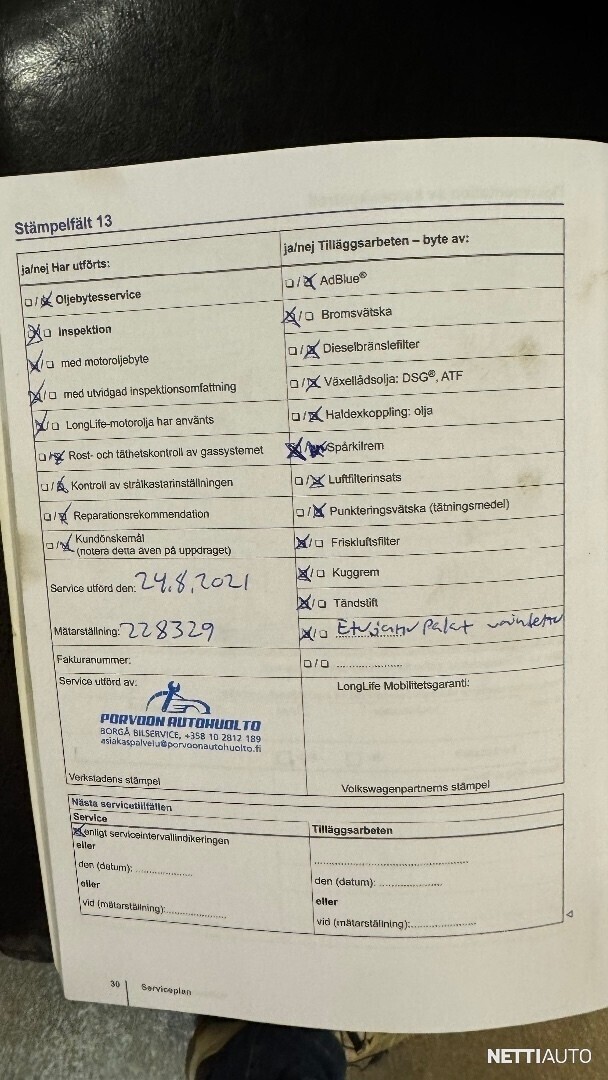 Stämpelfält 13
ja/nej Har utförts:
☐/☒ Oljebytesservice
☒/☐ Inspektion
☒/☐ med motoroljebyte
☒/☐ med utvidgad inspektionsomfattning
☒/☐ LongLife-motorolja har använts
☐/☒ Rost- och täthetskontroll av gassystemet
☐/☒ Kontroll av strålkastarinställningen
☐/☒ Reparationsrekommendation
☐/☒ Kundönskemål
(notera detta även på uppdraget)
Service utförd den: 24.8.2021
Mätarställning: 228329
Fakturanummer:
Service utförd av:
PORVOON AUTOHUOLTO
BORGÅ BILSERVICE, +358 10 2812 189
asiakaspalvelu@porvoonautohuolto.fi
Verkstadens stämpel
ja/nej Tilläggsarbeten – byte av:
☐/☒ AdBlue®
☒/☐ Bromsvätska
☐/☒ Dieselbränslefilter
☐/☒ Växellådsolja: DSG®, ATF
☐/☒ Haldexkoppling: olja
☒/☒ Spårkilrem
☐/☒ Luftfilterinsats
☐/☒ Punkteringsvätska (tätningsmedel)
☒/☐ Friskluftsfilter
☒/☐ Kuggrem
☒/☐ Tändstift
☒/☐ Etujarru palat
☐/☐ ....................
LongLife Mobilitetsgaranti:
Volkswagenpartnerns stämpel
Nästa servicetillfällen
Service
☒ enligt serviceintervallindikeringen
eller
den (datum): .................
eller
vid (mätarställning):.................
Tilläggsarbeten
............................................
den (datum): ..................
eller
vid (mätarställning):..................
30 Serviceplan
NETTIAUTO